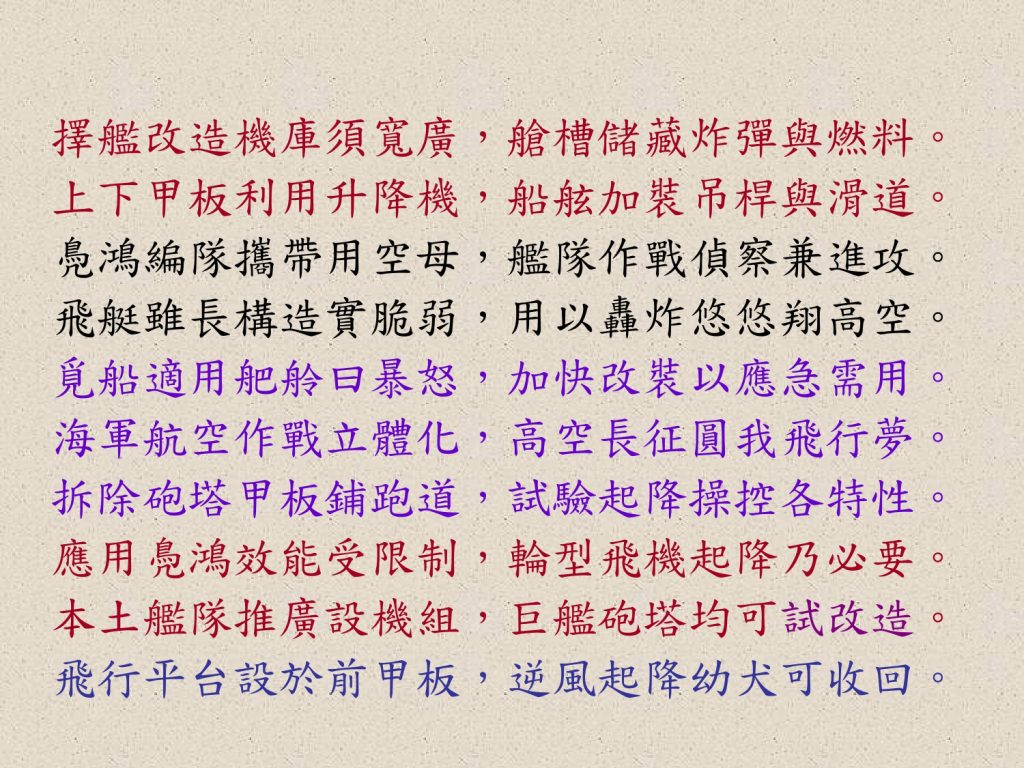 擇艦改造機庫須寬廣，艙槽儲藏炸彈與燃料。
上下甲板利用升降機，船舷加裝吊桿與滑道。
鳧鴻編隊攜帶用空母，艦隊作戰偵察兼進攻。
飛艇雖長構造實脆弱，用以轟炸悠悠翔高空。
覓船適用舥舲曰暴怒，加快改裝以應急需用。
海軍航空作戰立體化，高空長征圓我飛行夢。
拆除砲塔甲板鋪跑道，試驗起降操控各特性。
應用鳧鴻效能受限制，輪型飛機起降乃必要。
本土艦隊推廣設機組，巨艦砲塔均可試改造。
飛行平台設於前甲板，逆風起降幼犬可收回。